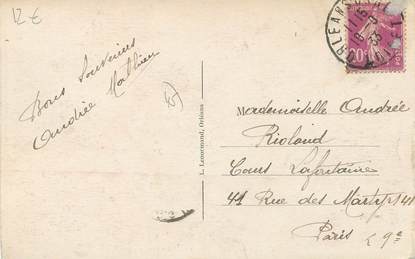 12 €
ORLEANS
20
Bons Souvenirs
Andrée Mathieu
L. Lenormand, Orléans
Mademoiselle Andrée
Rioland
Cours Lafontaine
41 Rue des Martyrs 41
Paris 9e